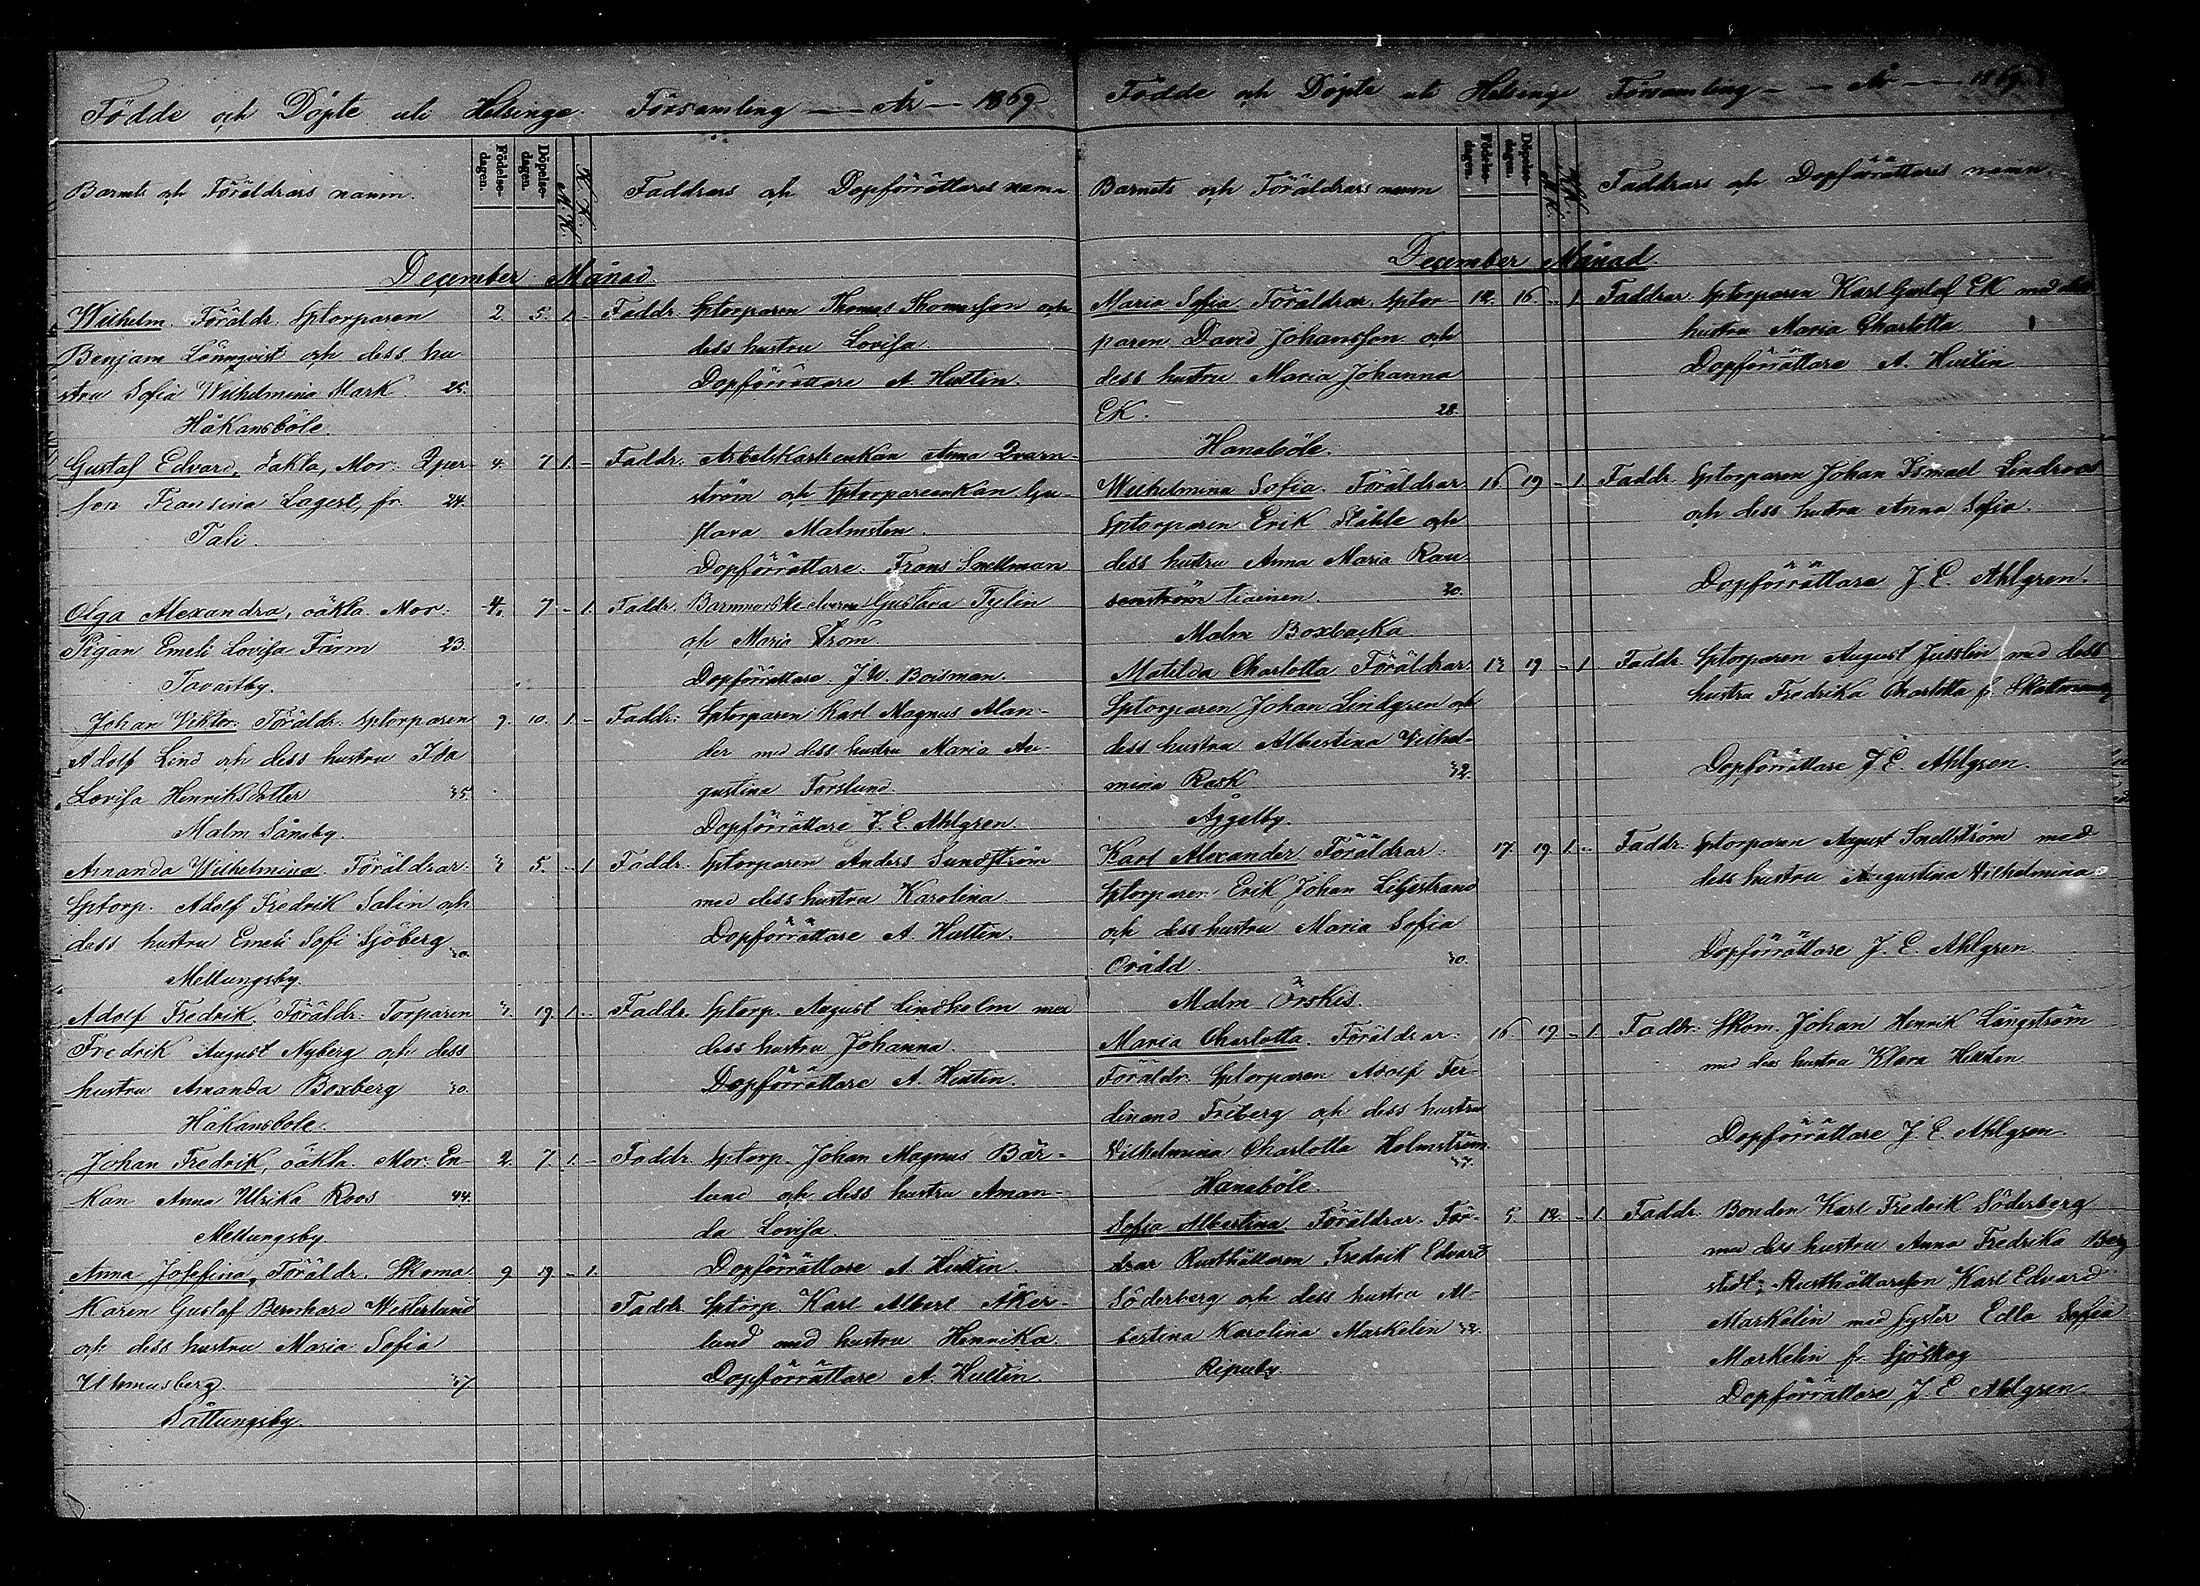 Födde och Döpte uti Helsinge Församling — År — 1869
Barnets och Föräldrars namn.
Födelse-dagen.
Döpelse-dagen.
M. K.
Q. K.
Faddrars och Dopförrättares namn
December Månad.
Wilhelm. Föräldr. Sptorparen 2. 5. 1. –
Benjam Lönnqvist och dess hu
stru Sofia Wilhelmina Mark 25.
Håkansböle.
Faddr. Sptorparen Thomas Thomasson och
dess hustru Lovisa.
Dopförrättare A. Hustin.
Gustaf Edvard, oäkta, Mor: 4. 7. 1. –
Fransina Lagert, fr. 24.
Tali.
Faddr. Anna Qvarn-
ström och Sptorpareenkan Gu-
stava Malmsten.
Dopförrättare: Frans Snellman
Olga Alexandra, oäkta. Mor: 4. 7. – 1.
Pigan Emeli Lovisa Färm 23.
Tavastby.
Faddr. Gustava Tylin
och Maria Ström.
Dopförrättare. J. W. Boisman.
Johan Viktor. Föräldr. Sptorparen 9. 10. 1. –
Adolf Lind och dess hustru Ida
Lovisa Henriksdotter 35.
Malm Sånsby.
Faddr: Sptorparen Karl Magnus Alan-
der med dess hustru Maria Au-
gustina Forslund
Dopförrättare J. E. Ahlgren.
Amanda Wilhelmina. Föräldrar: 3 5. – 1
Sptorp. Adolf Fredrik Salin och
dess hustru Emeli Sofi Sjöberg 30.
Mellungsby.
Faddr. Sptorparen Anders Sundström
med dess hustru Karolina.
Dopförrättare A. Hustin.
Adolf Fredrik. Föräldr: Torparen 19. 1. –
Fredrik August Nyberg och dess
hustru Amanda Boxberg 30.
Håkansböle.
Faddr. Sptorp. August Lindholm med
dess hustru Johanna.
Dopförrättare A. Hustin.
Johan Fredrik, oäkta. Mor: En 2. 7. 1. –
kan Anna Ulrika Roos 44.
Mellungsby
Faddr. Sptorp. Johan Magnus Bär-
lund och dess hustru Aman-
da Lovisa.
Dopförrättare A. Hustin.
Anna Josefina, Föräldr. Skoma 9 19 – 1.
karen Gustaf Bernhard Westerlund
och dess hustru Maria Sofia
37
Båttungsby.
Faddr. Sptorp. Karl Albert Åker-
lund med hustru Henrika.
Dopförrättare A. Hustin
Födde och Döpte uti Helsinge Församling – – År — 1869.
Barnets och Föräldrars namn
Födelse-dagen.
Döpelse-dagen.
M. K.
Q. K.
Faddrars och Dopförrättares namn.
December Månad.
Maria Sofia. Föräldrar. Sptor- 12. 16. – 1.
paren David Johansson och
dess hustru Maria Johanna
Ek. 28.
Hanaböle.
Faddrar. Sptorparen Karl Gustaf Ek med dess
hustru Maria Charlotta
Dopförrättare A. Hustin
Wilhelmina Sofia. Föräldrar 16 19 – 1.
Sptorparen Erik Ståhle och
dess hustru Anna Maria Rau
tiainen. 30.
Malm Boxbacka.
Faddr. Sptorparen Johan Ismael Lindroos
och dess hustru Anna Sofia.
Dopförrättare J. E. Ahlgren.
Matilda Charlotta Föräldrar 19 – 1
Sptorparen Johan Lindgren och
dess hustru Albertina Vilhel-
mina Rask 32.
Åggelby.
Faddr. Sptorparen August Jusslin med dess
hustru Fredrika Charlotta fr.
Dopförrättare J. E. Ahlgren.
Karl Alexander Föräldrar. 17. 19. 1. –
Sptorparen Erik Johan Liljestrand
och dess hustru Maria Sofia
Orädd. 30.
Malm Örskis.
Faddr. Sptorparen August Snellström med
dess hustru Augustina Vilhelmina.
Dopförrättare J. E. Ahlgren
Maria Charlotta. Föräldrar: 16 19. – 1.
Föräldr. Sptorparen Adolf Fer-
dinand Friberg och dess hustru
Vilhelmina Charlotta Holmström
37.
Hanaböle.
Faddr: Skom. Johan Henrik Långström
med dess hustru Klara Helen
Dopförrättare J. E. Ahlgren.
Sofia Albertina Föräldrar. För- 5. 12. – 1.
drar Rusthållaren Fredrik Edvard
Söderberg och dess hustru Al-
bertina Karolina Markelin 32.
Ripuby
Faddr. Bonden Karl Fredrik Söderberg
med dess hustru Anna Fredrika Berg
stedt; Rusthållarson Karl Edvard
Markelin med syster Edla Sofia
Markelin fr. Sjöskog
Dopförrättare, J. E. Ahlgren.